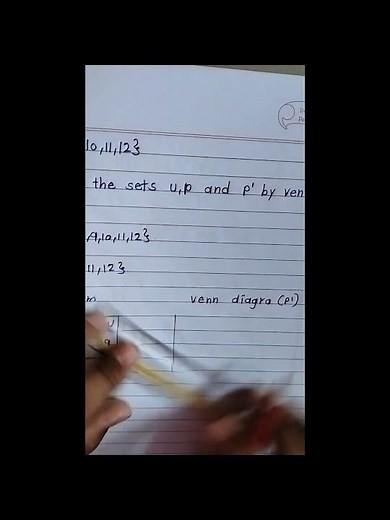 10,11,12}
the sets U,P and P' by ven
,9,10,11,12}
11,12}
m venn diagra (P')
U
9